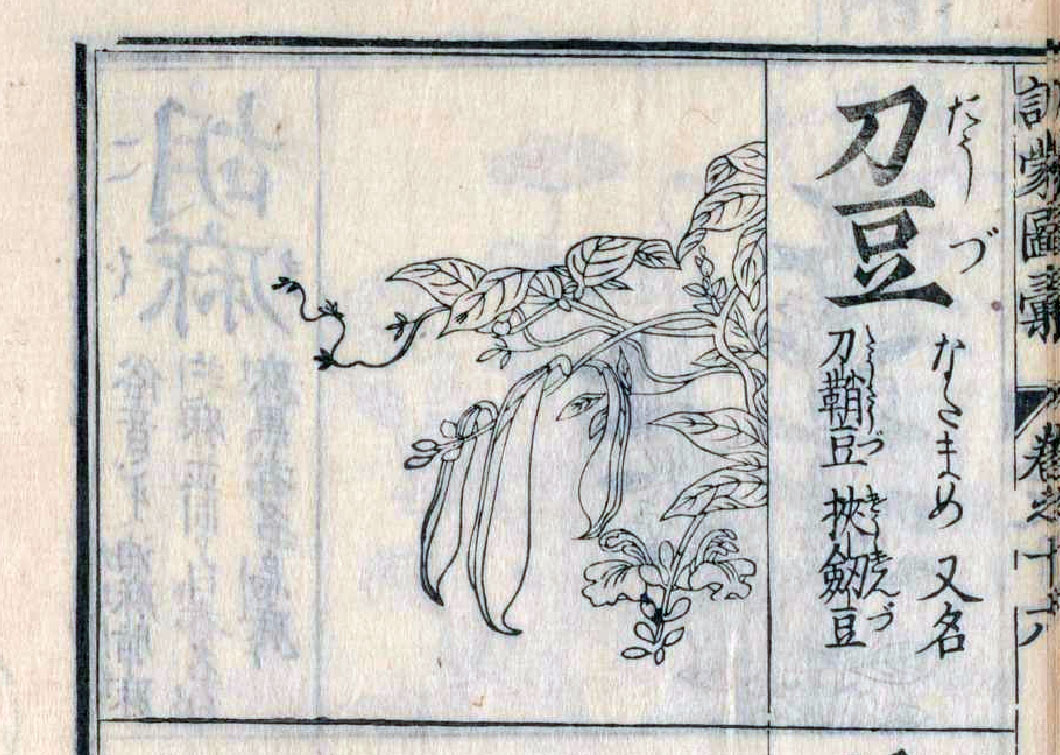 訓蒙圖彙 卷之十六
刀豆
たう づ
なたまめ 又名
刀鞘豆 挾劔豆
たうさうづ きやうけんづ